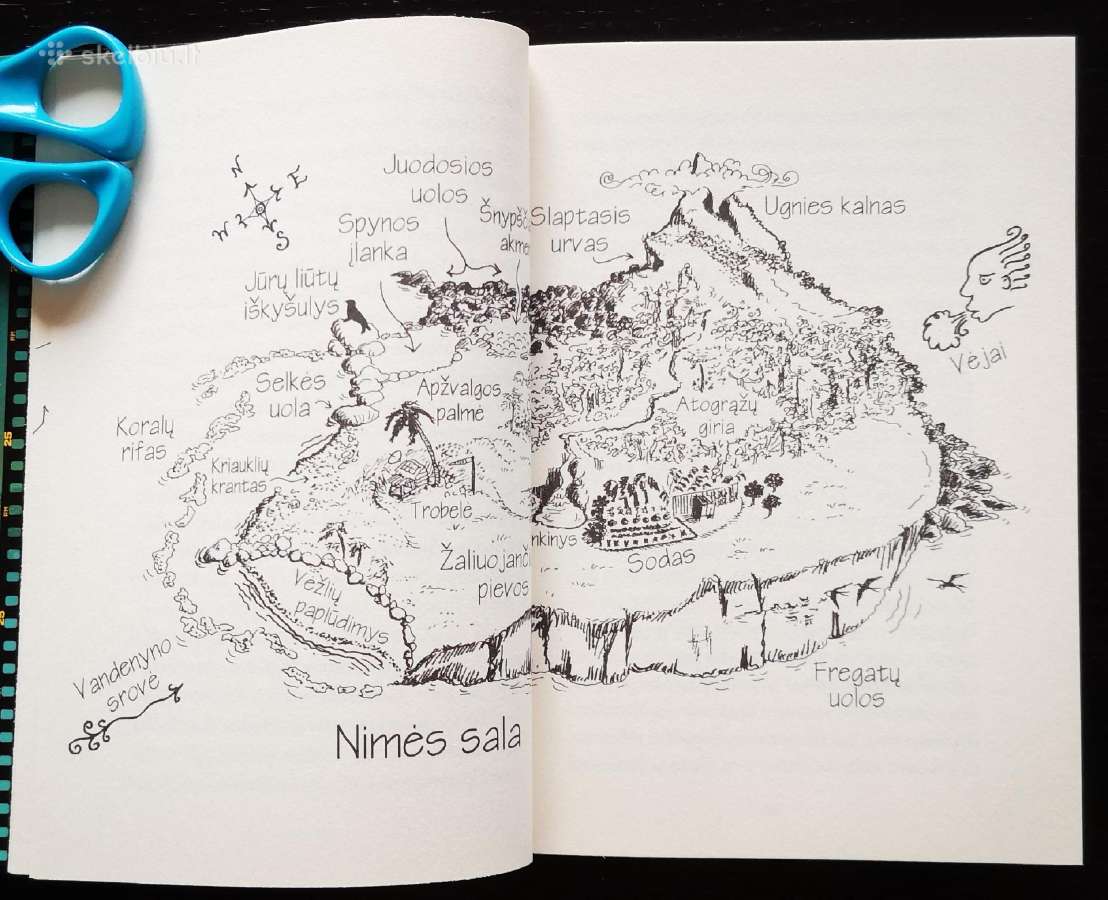 skelbiu.lt
N
E
W
S
Juodosios
uolos
Spynos
įlanka
Jūrų liūtų
iškyšulys
Slaptasis
urvas
Ugnies kalnas
Vėjai
Selkės
uola
Apžvalgos
palmė
Atogrąžų
giria
Koralų
rifas
Kriauklių
krantas
Trobelė
Žaliuojanč
pievos
nkinys
Sodas
Vėžlių
paplūdimys
Vandenyno
srovė
Fregatų
uolos
Nimės sala
25